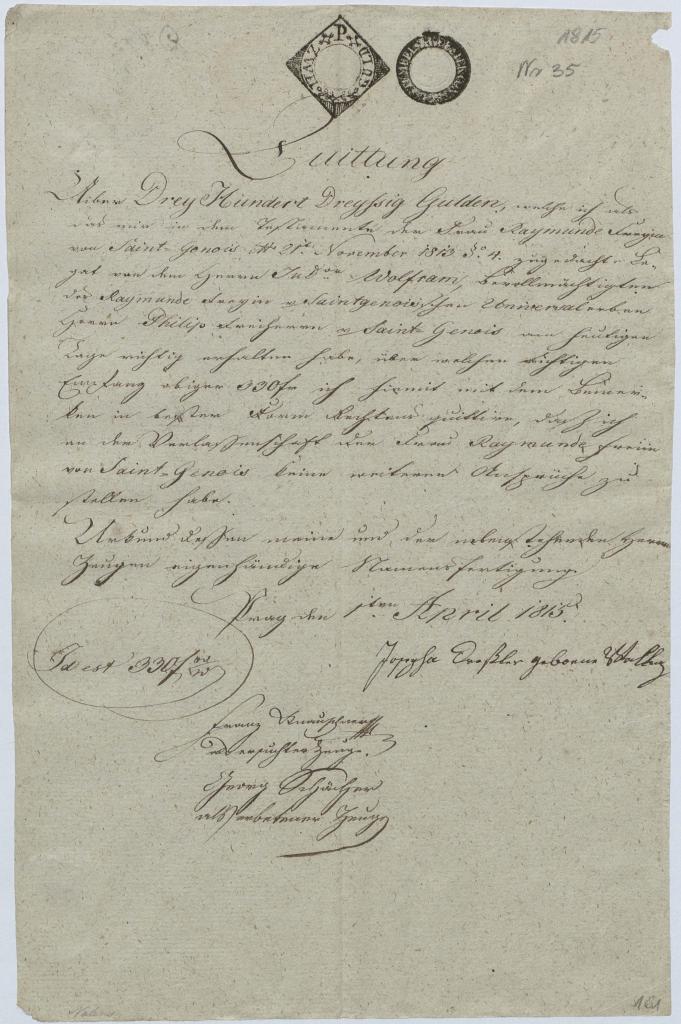 1815
Nr 35
Quittung
Uiber Drey Hundert Dreyssig Gulden, welche ich als
das mir in dem Testamente der Frau Raymunde Freyin
von Saint-Genois 21t November 1813 §o 4. zugedachte Le-
gat von dem Herrn Wolfram, Bevollmächtigten
der Raymunde Freyin v Saintgenoisischen Universalerben
Herrn Philip Freiherrn v Saint Genois am heutigen
Tage richtig erhalten habe, über welchen richtigen
Empfang obiger 330f ich hiemit mit dem Bemer-
ken in bester Form Rechtens quittire, daß ich
an der Verlassenschaft der Frau Raymunde Freiin
von Saint-Genois keine weiteren Ansprüche zu
stellen habe.
Urkund dessen meine und der nebenstehenden Herrn
Zeugen eigenhändige Namensfertigung.
Prag den 1ten April 1815.
Id est 330f
geborne
Franz
als ersuchter Zeuge.
Georg
als erbetener Zeuge
181